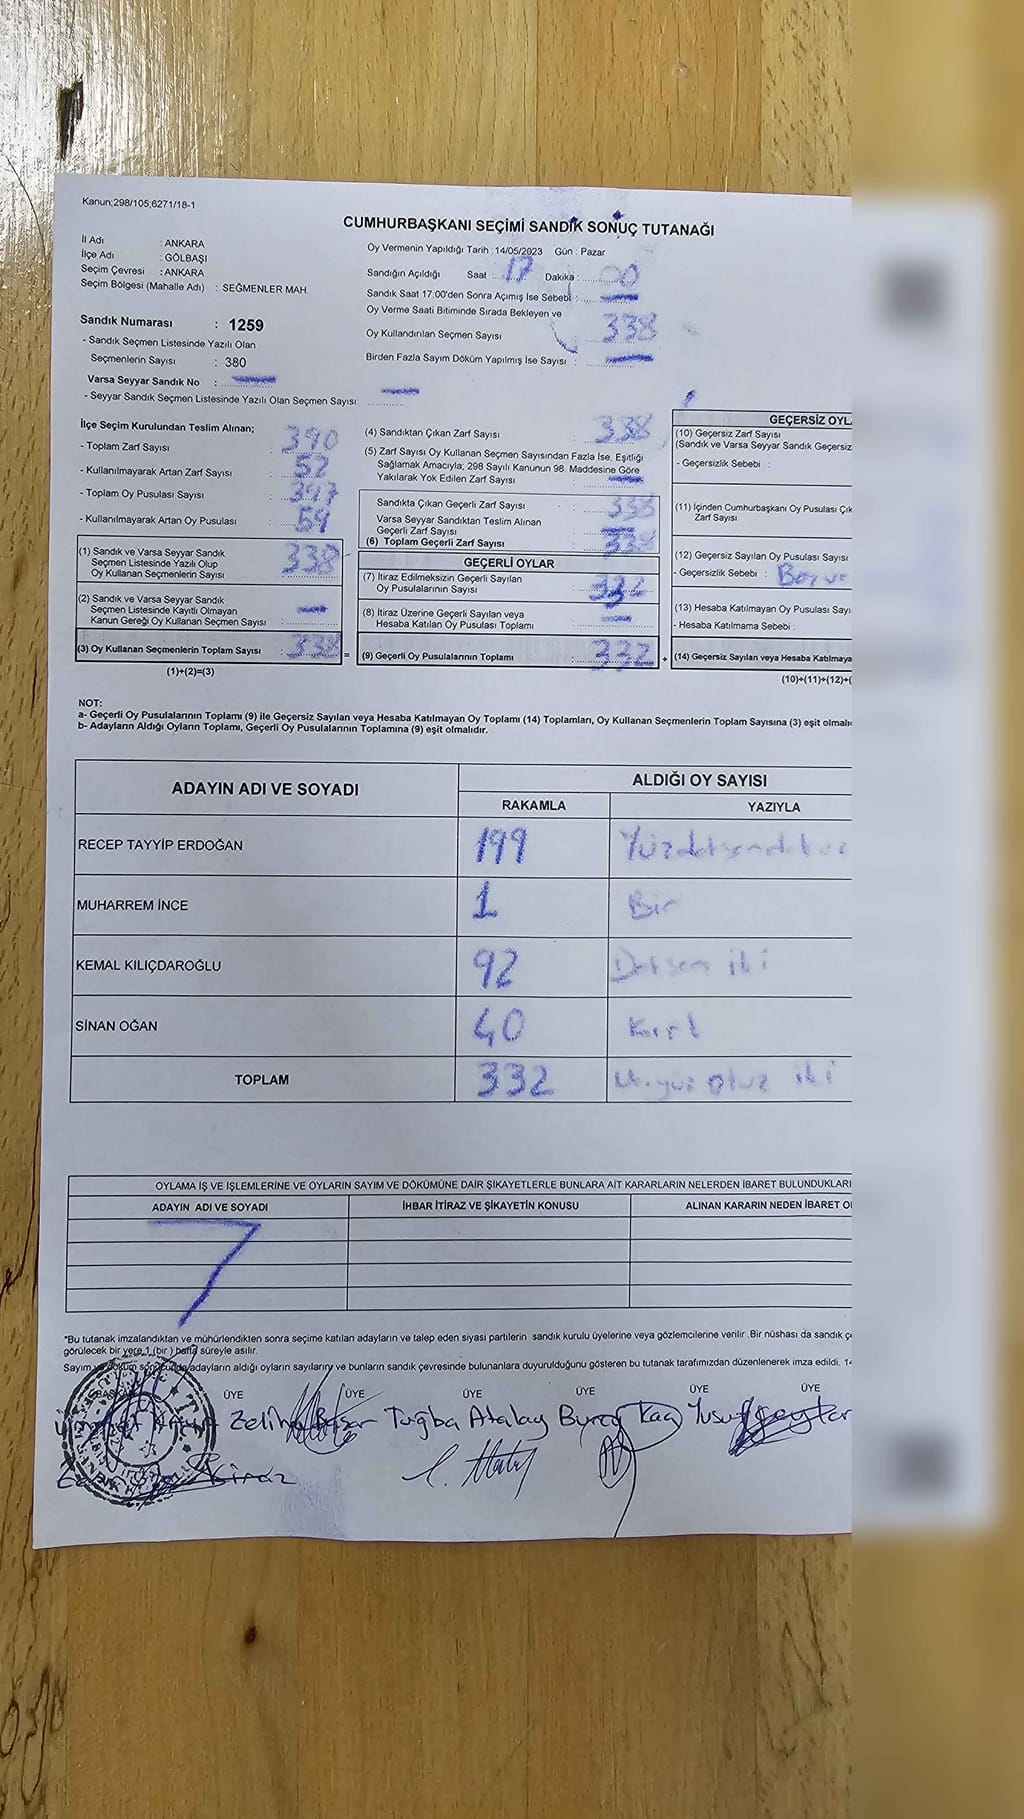 Kanun;298/105;6271/18-1
CUMHURBAŞKANI SEÇİMİ SANDIK SONUÇ TUTANAĞI
İl Adı : ANKARA
İlçe Adı : GÖLBAŞI
Seçim Çevresi : ANKARA
Seçim Bölgesi (Mahalle Adı) : SEĞMENLER MAH.
Sandık Numarası : 1259
- Sandık Seçmen Listesinde Yazılı Olan
Seçmenlerin Sayısı : 380
Varsa Seyyar Sandık No :
- Seyyar Sandık Seçmen Listesinde Yazılı Olan Seçmen Sayısı:
Oy Vermenin Yapıldığı Tarih : 14/05/2023 Gün : Pazar
Sandığın Açıldığı Saat : 17 Dakika : 00
Sandık Saat 17:00'den Sonra Açımış İse Sebebi :
Oy Verme Saati Bitiminde Sırada Bekleyen ve
Oy Kullandırılan Seçmen Sayısı : 338
Birden Fazla Sayım Döküm Yapılmış İse Sayısı :
İlçe Seçim Kurulundan Teslim Alınan;
- Toplam Zarf Sayısı : 390
- Kullanılmayarak Artan Zarf Sayısı : 52
- Toplam Oy Pusulası Sayısı : 397
- Kullanılmayarak Artan Oy Pusulası : 59
(1) Sandık ve Varsa Seyyar Sandık
Seçmen Listesinde Yazılı Olup
Oy Kullanan Seçmenlerin Sayısı : 338
(2) Sandık ve Varsa Seyyar Sandık
Seçmen Listesinde Kayıtlı Olmayan
Kanun Gereği Oy Kullanan Seçmen Sayısı :
(3) Oy Kullanan Seçmenlerin Toplam Sayısı : 338
(1)+(2)=(3)
(4) Sandıktan Çıkan Zarf Sayısı : 338
(5) Zarf Sayısı Oy Kullanan Seçmen Sayısından Fazla İse, Eşitliği
Sağlamak Amacıyla; 298 Sayılı Kanunun 98. Maddesine Göre
Yakılarak Yok Edilen Zarf Sayısı :
Sandıkta Çıkan Geçerli Zarf Sayısı : 338
Varsa Seyyar Sandıktan Teslim Alınan
Geçerli Zarf Sayısı :
(6) Toplam Geçerli Zarf Sayısı : 338
GEÇERLİ OYLAR
(7) İtiraz Edilmeksizin Geçerli Sayılan
Oy Pusulalarının Sayısı :
(8) İtiraz Üzerine Geçerli Sayılan veya
Hesaba Katılan Oy Pusulası Toplamı :
= (9) Geçerli Oy Pusulalarının Toplamı : 332 +
GEÇERSİZ OYL
(10) Geçersiz Zarf Sayısı
(Sandık ve Varsa Seyyar Sandık Geçersiz
- Geçersizlik Sebebi :
(11) İçinden Cumhurbaşkanı Oy Pusulası Çık
Zarf Sayısı
(12) Geçersiz Sayılan Oy Pusulası Sayısı
- Geçersizlik Sebebi :
(13) Hesaba Katılmayan Oy Pusulası Sayı
- Hesaba Katılmama Sebebi :
(14) Geçersiz Sayılan veya Hesaba Katılmaya
(10)+(11)+(12)+(
NOT:
a- Geçerli Oy Pusulalarının Toplamı (9) ile Geçersiz Sayılan veya Hesaba Katılmayan Oy Toplamı (14) Toplamları, Oy Kullanan Seçmenlerin Toplam Sayısına (3) eşit olmalı
b- Adayların Aldığı Oyların Toplamı, Geçerli Oy Pusulalarının Toplamına (9) eşit olmalıdır.
ADAYIN ADI VE SOYADI ALDIĞI OY SAYISI
RAKAMLA YAZIYLA
RECEP TAYYİP ERDOĞAN 199
MUHARREM İNCE 1 Bir
KEMAL KILIÇDAROĞLU 92 Doksan iki
SİNAN OĞAN 40 Kırk
TOPLAM 332 Üçyüz otuz iki
OYLAMA İŞ VE İŞLEMLERİNE VE OYLARIN SAYIM VE DÖKÜMÜNE DAİR ŞİKAYETLERLE BUNLARA AİT KARARLARIN NELERDEN İBARET BULUNDUKLARI
ADAYIN ADI VE SOYADI İHBAR İTİRAZ VE ŞİKAYETİN KONUSU ALINAN KARARIN NEDEN İBARET O
*Bu tutanak imzalandıktan ve mühürlendikten sonra seçime katılan adayların ve talep eden siyasi partilerin sandık kurulu üyelerine veya gözlemcilerine verilir .Bir nüshası da sandık ç
görülecek bir yere 1 (bir ) hafta süreyle asılır.
Sayım ve döküm sonucunda adayların aldığı oyların sayılarını ve bunların sandık çevresinde bulunanlara duyurulduğunu gösteren bu tutanak tarafımızdan düzenlenerek imza edildi. 14
BAŞKAN ÜYE ÜYE ÜYE ÜYE ÜYE ÜYE
Zeliha Başar Tuğba Atalay Yusuf
Kiraz